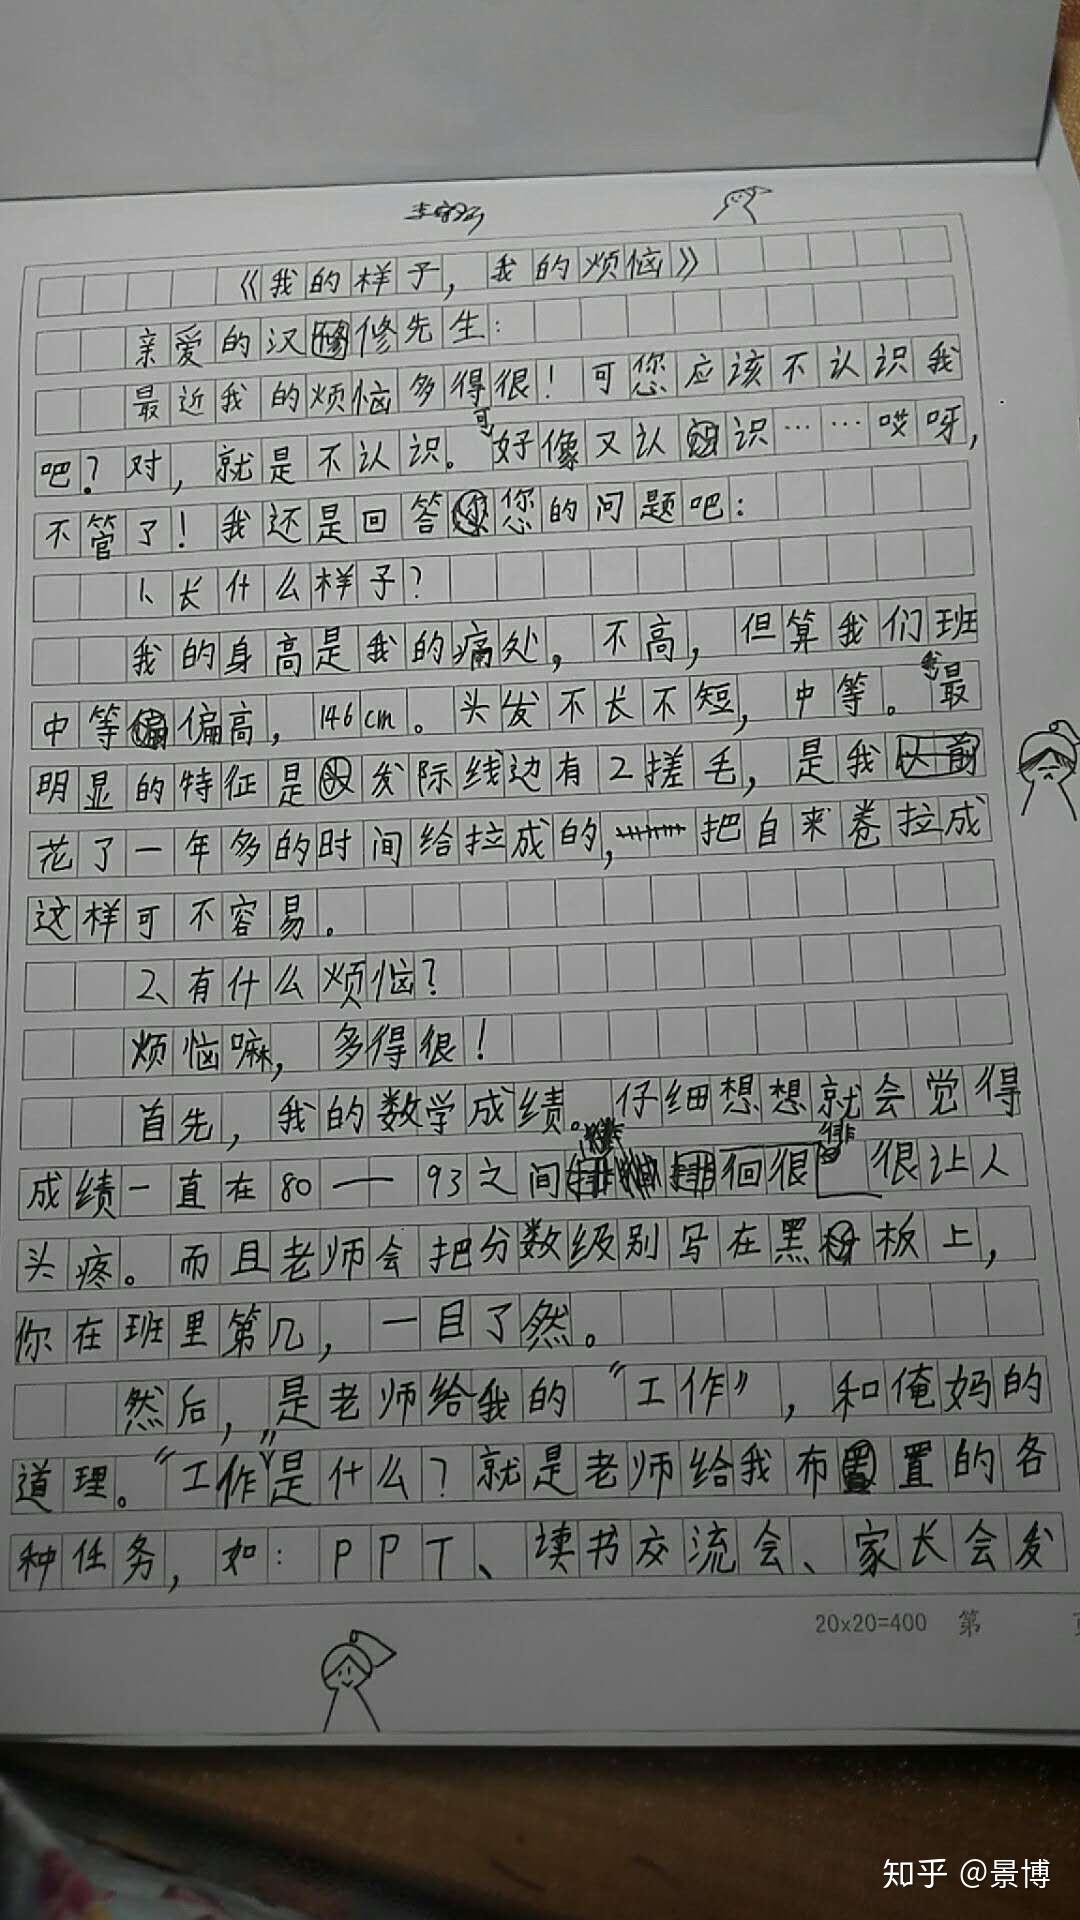 《我的样子，我的烦恼》
亲爱的汉修先生：
最近我的烦恼多得很！可您应该不认识我
吧？对，就是不认识。可好像又认识……哎呀，
不管了！我还是回答您的问题吧：
1、长什么样子？
我的身高是我的痛处，不高，但算我们班
中等偏高，146cm。头发不长不短，中等。我最
明显的特征是发际线边有2搓毛，是我
花了一年多的时间给拉成的，把自来卷拉成
这样可不容易。
2、有什么烦恼？
烦恼嘛，多得很！
首先，我的数学成绩。仔细想想就会觉得
成绩一直在80——93之间徘徊很很让人
头疼。而且老师会把分数级别写在黑板上，
你在班里第几，一目了然。
然后，是老师给我的“工作”，和俺妈的
道理。“工作”是什么？就是老师给我布置的各
种任务，如：PPT、读书交流会、家长会发
20x20=400 第
知乎 @景博